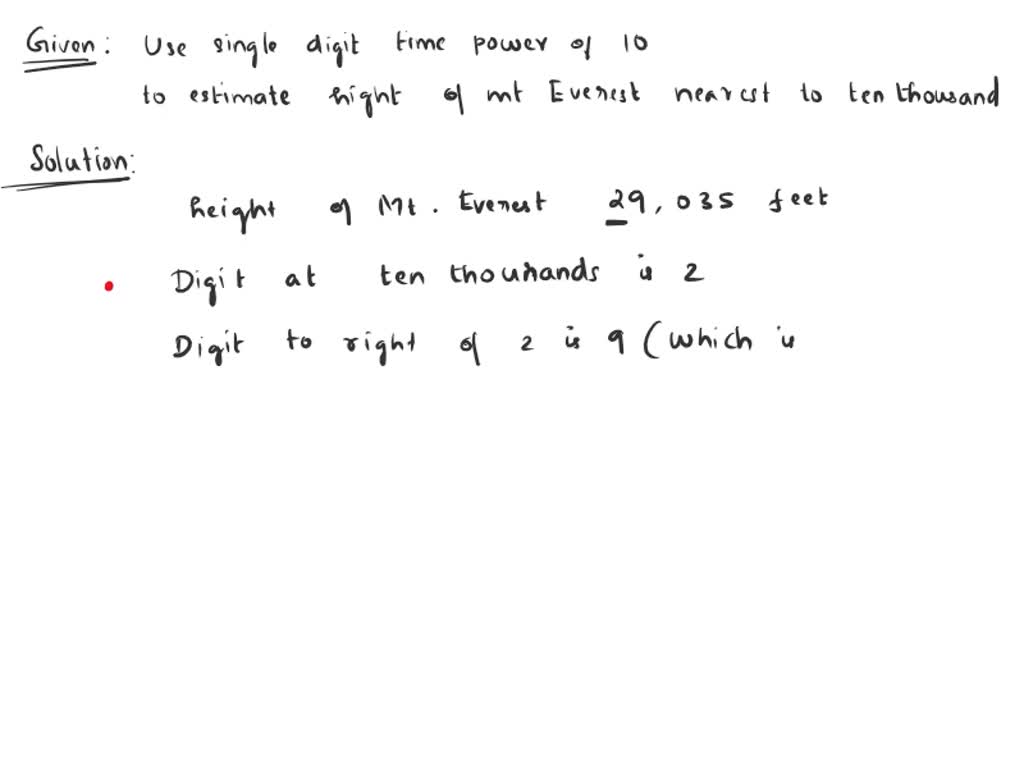 Given: Use single digit time power of 10
to estimate hight of mt Everest nearest to ten thousand
Solution:
height of Mt. Everest 29,035 feet
Digit at ten thousands is 2
Digit to right of 2 is 9 (which is